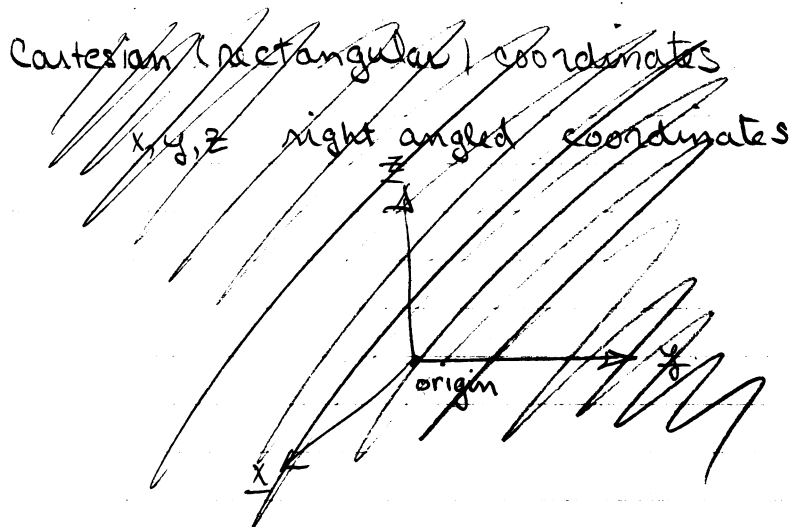 Cartesian (rectangular) coordinates
x, y, z right angled coordinates
z
y
origin
x